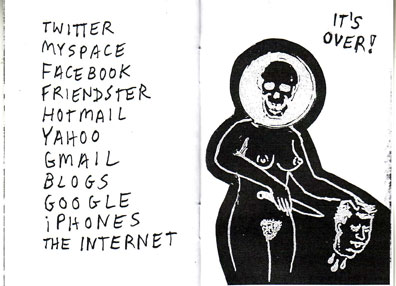 TWITTER
MYSPACE
FACEBOOK
FRIENDSTER
HOTMAIL
YAHOO
GMAIL
BLOGS
GOOGLE
iPHONES
THE INTERNET
IT'S
OVER!